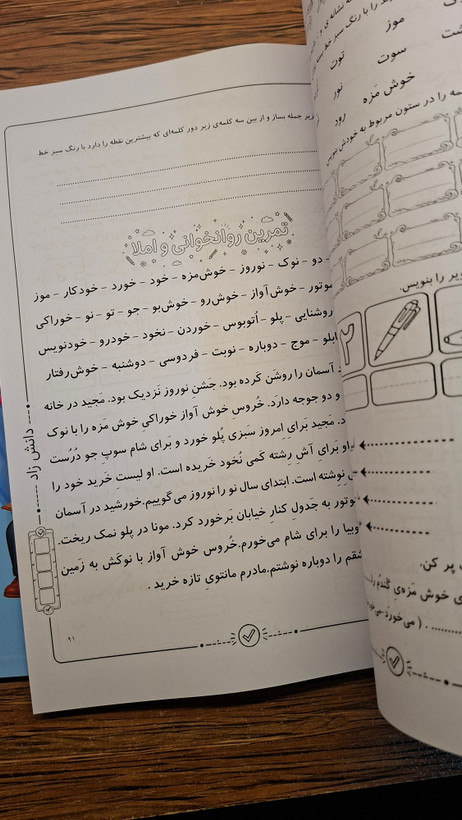 زیر جمله بساز و از بین سه کلمه‌ی زیر دور کلمه‌ای که بیشترین نقطه را دارد با رنگ سبز خط
تمرین روانخوانی و املا
- دو - نوک - نوروز - خوش‌مزه - خود - خورد - خودکار - موز
موتور - خوش‌آواز - خوش‌رو - خوش‌بو - جو - تو - نو - خوراکی
روشنایی - پلو - اُتوبوس - خوردن - نخود - خودرو - خودنویس
موج - دوباره - نوبت - فردوسی - دوشنبه - خوش‌رفتار
آسمان را روشن کَرده بود. جَشن نوروز نَزدیک بود. مَجید در خانه
و دو جوجه دارَد. خُروسِ خوش آواز خوراکیِ خوش مَزه را با نوک
مَجید بَرایِ اِمروز سَبزی پُلو خورد و بَرای شام سوپِ جو دُرُست
بَرای آشِ رِشته کَمی نُخود خَریده است. او لیست خَرید خود را
نوشته است. ابتدای سال نو را نوروز می‌گوییم.خورشید در آسمان
موتور به جَدولِ کنارِ خیابان بَرخورد کرد. مونا در پلو نمک ریخت.
را برای شام می‌خورم.خُروس خوش آواز با نوکَش به زَمین
را دوباره نوشتم.مادرم مانتویِ تازه خَرید .
دانش زاد
۹۱
موز
سوت
توت
خوش مَزه
نور
رود
را در ستون مربوط به خودش بنویس
را بنویس.
۲
پر کن.
خوش مَزه‌ی گندُم